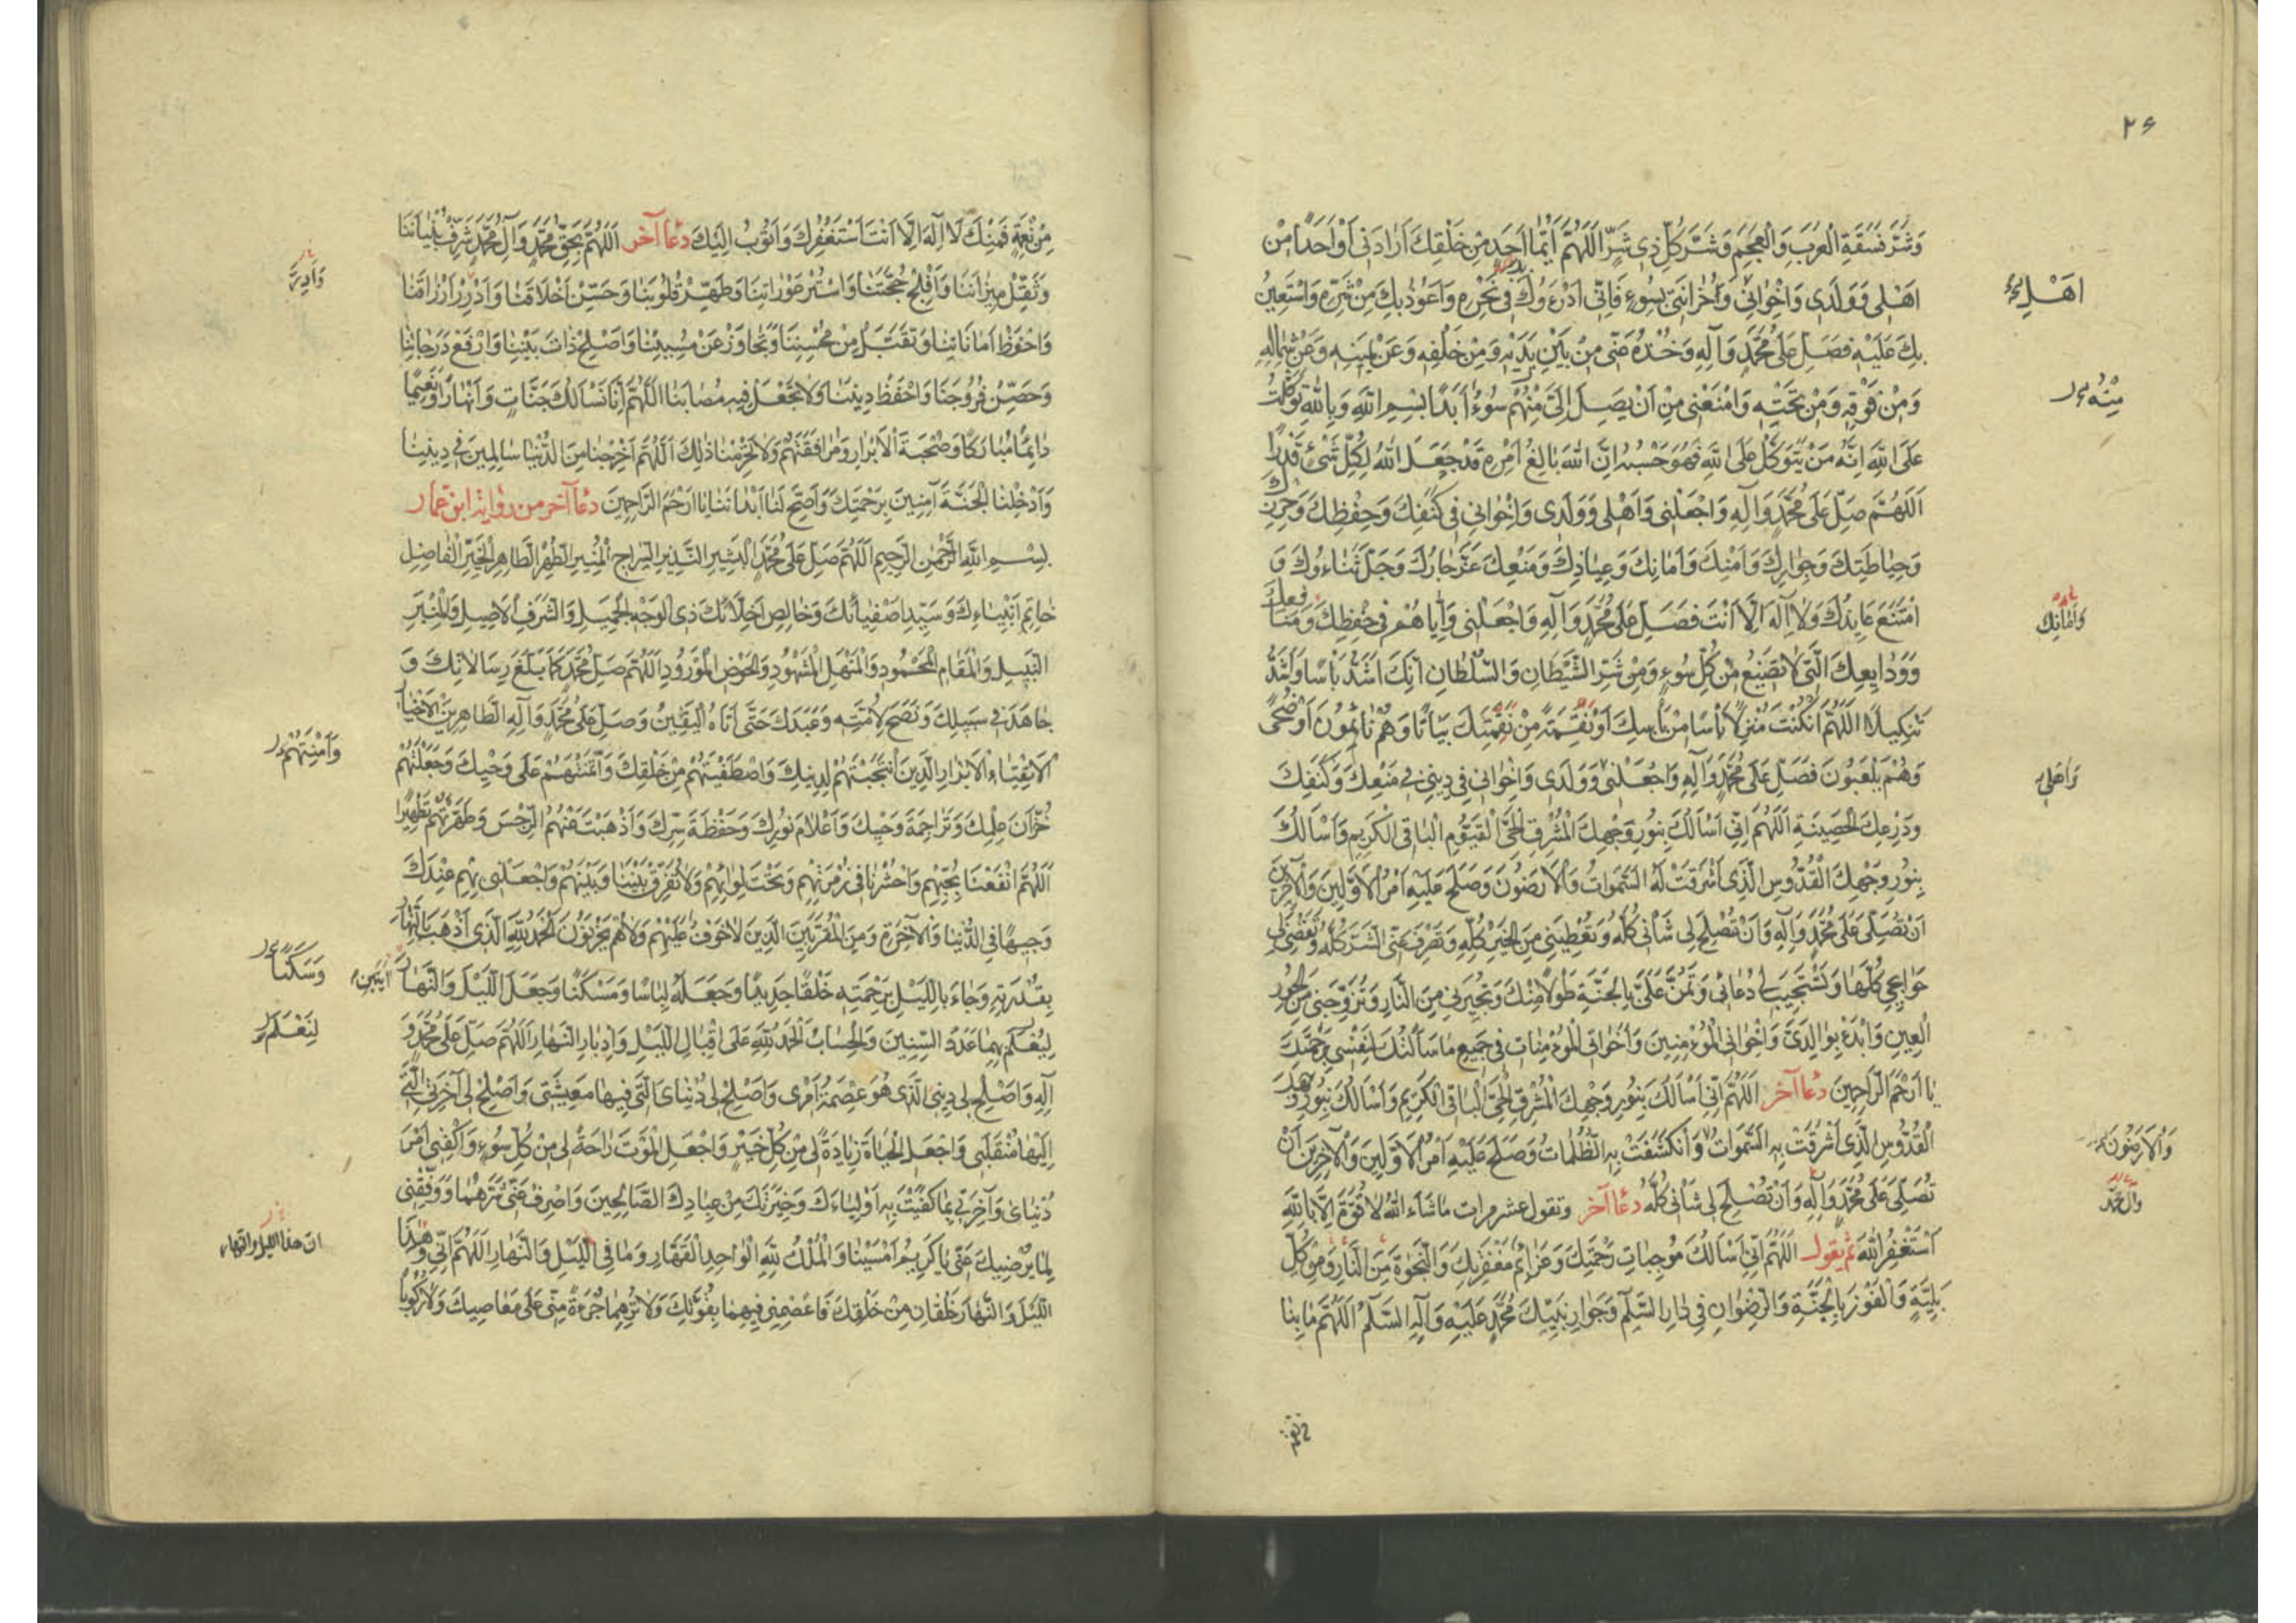 ۲۶
وَشَرِّ فَسَقَةِ الْعَرَبِ وَالْعَجَمِ وَشَرِّ كُلِّ ذِي شَرٍّ اَللّٰهُمَّ اَيُّمَا اَحَدٍ مِنْ خَلْقِكَ اَرَادَنِي اَوْ اَحَدًا مِنْ
اَهْلِي وَوَلَدِي وَاِخْوَانِي وَاَخَوَاتِي بِسُوءٍ فَاِنِّي اَدْرَءُوكَ فِي نَحْرِهِ وَاَعُوذُ بِكَ مِنْ شَرِّهِ وَاَسْتَعِينُ
بِكَ عَلَيْهِ فَصَلِّ عَلَى مُحَمَّدٍ وَآلِهِ وَخُذْهُ عَنِّي مِنْ بَيْنِ يَدَيْهِ وَمِنْ خَلْفِهِ وَعَنْ يَمِينِهِ وَعَنْ شِمَالِهِ
وَمِنْ فَوْقِهِ وَمِنْ تَحْتِهِ وَامْنَعْنِي مِنْ اَنْ يَصِلَ اِلَيَّ مِنْهُمْ سُوءٌ اَبَدًا بِسْمِ اللهِ وَبِاللهِ تَوَكَّلْتُ
عَلَى اللهِ اِنَّهُ مَنْ يَتَوَكَّلْ عَلَى اللهِ فَهُوَ حَسْبُهُ اِنَّ اللهَ بَالِغُ اَمْرِهِ قَدْ جَعَلَ اللهُ لِكُلِّ شَيْءٍ قَدْرًا
اَللّٰهُمَّ صَلِّ عَلَى مُحَمَّدٍ وَآلِهِ وَاجْعَلْنِي وَاَهْلِي وَوَلَدِي وَاِخْوَانِي فِي كَنَفِكَ وَحِفْظِكَ وَحِرْزِكَ
وَحِيَاطَتِكَ وَجِوَارِكَ وَاَمْنِكَ وَاَمَانِكَ وَعِيَاذِكَ وَمَنْعِكَ عَزَّ جَارُكَ وَجَلَّ ثَنَاءُوكَ وَ
امْتَنَعَ عَايِذُكَ وَلَا اِلٰهَ اِلَّا اَنْتَ فَصَلِّ عَلَى مُحَمَّدٍ وَآلِهِ وَاجْعَلْنِي وَاِيَّاهُمْ فِي حِفْظِكَ وَمَنَافِعِكَ
وَوَدَايِعِكَ الَّتِي لَا تَضِيعُ مِنْ كُلِّ سُوءٍ وَمِنْ شَرِّ الشَّيْطَانِ وَالسُّلْطَانِ اِنَّكَ اَشَدُّ بَأْسًا وَاَشَدُّ
تَنْكِيلًا اَللّٰهُمَّ اِنْ كُنْتَ مُنْزِلًا بَأْسًا مِنْ بَأْسِكَ اَوْ نَقِمَةً مِنْ نَقِمَتِكَ بَيَاتًا وَهُمْ نَائِمُونَ اَوْ ضُحًى
وَهُمْ يَلْعَبُونَ فَصَلِّ عَلَى مُحَمَّدٍ وَآلِهِ وَاجْعَلْنِي وَوَلَدِي وَاِخْوَانِي فِي دِينِي فِي مَنْعِكَ وَكَنَفِكَ
وَدِرْعِكَ الْحَصِينَةِ اَللّٰهُمَّ اِنِّي اَسْأَلُكَ بِنُورِ وَجْهِكَ الْمُشْرِقِ الْحَيِّ الْقَيُّومِ الْبَاقِي الْكَرِيمِ وَاَسْأَلُكَ
بِنُورِ وَجْهِكَ الْقُدُّوسِ الَّذِي اَشْرَقَتْ لَهُ السَّمٰوَاتُ وَالْاَرَضُونَ وَصَلَحَ عَلَيْهِ اَمْرُ الْاَوَّلِينَ وَالْآخِرِينَ
اَنْ تُصَلِّيَ عَلَى مُحَمَّدٍ وَآلِهِ وَاَنْ تُصْلِحَ لِي شَأْنِي كُلَّهُ وَتُعْطِيَنِي مِنَ الْخَيْرِ كُلِّهِ وَتَصْرِفَ عَنِّي الشَّرَّ كُلَّهُ وَتَقْضِيَ لِي
حَوَائِجِي كُلَّهَا وَتَسْتَجِيبَ لِي دُعَائِي وَتَمُنَّ عَلَيَّ بِالْجَنَّةِ طَوْلًا مِنْكَ وَتُجِيرَنِي مِنَ النَّارِ وَتُزَوِّجَنِي مِنَ الْحُورِ
الْعِينِ وَابْدَءْ بِوَالِدَيَّ وَاِخْوَانِي الْمُؤْمِنِينَ وَاَخَوَاتِي الْمُؤْمِنَاتِ فِي جَمِيعِ مَا سَأَلْتُكَ لِنَفْسِي بِرَحْمَتِكَ
يَا اَرْحَمَ الرَّاحِمِينَ دُعَا آخر اَللّٰهُمَّ اِنِّي اَسْأَلُكَ بِنُورِ وَجْهِكَ الْمُشْرِقِ الْحَيِّ الْبَاقِي الْكَرِيمِ وَاَسْأَلُكَ بِنُورِ وَجْهِكَ
الْقُدُّوسِ الَّذِي اَشْرَقَتْ بِهِ السَّمٰوَاتُ وَانْكَشَفَتْ بِهِ الظُّلُمَاتُ وَصَلَحَ عَلَيْهِ اَمْرُ الْاَوَّلِينَ وَالْآخِرِينَ اَنْ
تُصَلِّيَ عَلَى مُحَمَّدٍ وَآلِهِ وَاَنْ تُصْلِحَ لِي شَأْنِي كُلَّهُ دُعَا آخر وتقول عشر مرات مَا شَاءَ اللهُ لَا قُوَّةَ اِلَّا بِاللهِ
اَسْتَغْفِرُ اللهَ ثم يقول اَللّٰهُمَّ اِنِّي اَسْأَلُكَ مُوجِبَاتِ رَحْمَتِكَ وَعَزَائِمَ مَغْفِرَتِكَ وَالنَّجَاةَ مِنَ النَّارِ وَمِنْ كُلِّ
بَلِيَّةٍ وَالْفَوْزَ بِالْجَنَّةِ وَالرِّضْوَانِ فِي دَارِ السَّلَامِ وَجِوَارِ نَبِيِّكَ مُحَمَّدٍ عَلَيْهِ وَآلِهِ السَّلَامُ اَللّٰهُمَّ مَا بِنَا
اَهْلِي
مِنْهُ
وَاَمَانِكَ
وَاَهْلِي
وَالْاَرَضُونَ
وآل محمد
مِنْ نِعْمَةٍ فَمِنْكَ لَا اِلٰهَ اِلَّا اَنْتَ اَسْتَغْفِرُكَ وَاَتُوبُ اِلَيْكَ دُعَا آخر اَللّٰهُمَّ بِحَقِّ مُحَمَّدٍ وَآلِ مُحَمَّدٍ شَرِّفْ بُنْيَانَنَا
وَثَقِّلْ مِيزَانَنَا وَاَفْلِجْ حُجَّتَنَا وَاسْتُرْ عَوْرَاتِنَا وَطَهِّرْ قُلُوبَنَا وَحَسِّنْ اَخْلَاقَنَا وَاَدْرِرْ اَرْزَاقَنَا
وَاحْفَظْ اَمَانَاتِنَا وَتَقَبَّلْ مِنْ مُحْسِنِنَا وَتَجَاوَزْ عَنْ مُسِيئِنَا وَاَصْلِحْ ذَاتَ بَيْنِنَا وَارْفَعْ دَرَجَاتِنَا
وَحَصِّنْ فُرُوجَنَا وَاحْفَظْ دِينَنَا وَلَا تَجْعَلْ فِيهِ مُصَابَنَا اَللّٰهُمَّ اِنَّا نَسْأَلُكَ جَنَّاتٍ وَاَنْهَارًا وَنَعِيمًا
دَائِمًا مُبَارَكًا وَصُحْبَةَ الْاَبْرَارِ وَمُرَافَقَتَهُمْ وَلَا تَحْرِمْنَا ذٰلِكَ اَللّٰهُمَّ اَخْرِجْنَا مِنَ الدُّنْيَا سَالِمِينَ فِي دِينِنَا
وَاَدْخِلْنَا الْجَنَّةَ آمِنِينَ بِرَحْمَتِكَ وَاَصِحَّ لَنَا اَبْدَانَنَا يَا اَرْحَمَ الرَّاحِمِينَ دُعَا آخر من رواية ابن عمار
بِسْمِ اللهِ الرَّحْمٰنِ الرَّحِيمِ اَللّٰهُمَّ صَلِّ عَلَى مُحَمَّدٍ الْبَشِيرِ النَّذِيرِ السِّرَاجِ الْمُنِيرِ الطُّهْرِ الطَّاهِرِ الْخَيِّرِ الْفَاضِلِ
خَاتِمِ اَنْبِيَاءِكَ وَسَيِّدِ اَصْفِيَائِكَ وَخَالِصِ اَخِلَّائِكَ ذِي الْوَجْهِ الْجَمِيلِ وَالشَّرَفِ الْاَصِيلِ وَالْمِنْبَرِ
النَّبِيلِ وَالْمَقَامِ الْمَحْمُودِ وَالْمَنْهَلِ الْمَشْهُودِ وَالْحَوْضِ الْمَوْرُودِ اَللّٰهُمَّ صَلِّ عَلَى مُحَمَّدٍ كَمَا بَلَّغَ رِسَالَاتِكَ وَ
جَاهَدَ فِي سَبِيلِكَ وَنَصَحَ لِاُمَّتِهِ وَعَبَدَكَ حَتَّى اَتَاهُ الْيَقِينُ وَصَلِّ عَلَى مُحَمَّدٍ وَآلِهِ الطَّاهِرِينَ الْاَخْيَارِ
الْاَتْقِيَاءِ الْاَبْرَارِ الَّذِينَ انْتَجَبْتَهُمْ لِدِينِكَ وَاصْطَفَيْتَهُمْ مِنْ خَلْقِكَ وَائْتَمَنْتَهُمْ عَلَى وَحْيِكَ وَجَعَلْتَهُمْ
خُزَّانَ عِلْمِكَ وَتَرَاجِمَةَ وَحْيِكَ وَاَعْلَامَ نُورِكَ وَحَفَظَةَ سِرِّكَ وَاَذْهَبْتَ عَنْهُمُ الرِّجْسَ وَطَهَّرْتَهُمْ تَطْهِيرًا
اَللّٰهُمَّ انْفَعْنَا بِحُبِّهِمْ وَاحْشُرْنَا فِي زُمْرَتِهِمْ وَتَحْتَ لِوَائِهِمْ وَلَا تُفَرِّقْ بَيْنَنَا وَبَيْنَهُمْ وَاجْعَلْنِي بِهِمْ عِنْدَكَ
وَجِيهًا فِي الدُّنْيَا وَالْآخِرَةِ وَمِنَ الْمُقَرَّبِينَ الَّذِينَ لَا خَوْفٌ عَلَيْهِمْ وَلَا هُمْ يَحْزَنُونَ اَلْحَمْدُ لِلّٰهِ الَّذِي اَذْهَبَ بِالنَّهَارِ
بِقُدْرَتِهِ وَجَاءَ بِاللَّيْلِ بِرَحْمَتِهِ خَلْقًا جَدِيدًا وَجَعَلَهُ لِبَاسًا وَمَسْكَنًا وَجَعَلَ اللَّيْلَ وَالنَّهَارَ آيَتَيْنِ
لِيُعْلَمَ بِهِمَا عَدَدُ السِّنِينَ وَالْحِسَابُ اَلْحَمْدُ لِلّٰهِ عَلَى اِقْبَالِ اللَّيْلِ وَاِدْبَارِ النَّهَارِ اَللّٰهُمَّ صَلِّ عَلَى مُحَمَّدٍ وَ
آلِهِ وَاَصْلِحْ لِي دِينِي الَّذِي هُوَ عِصْمَةُ اَمْرِي وَاَصْلِحْ لِي دُنْيَايَ الَّتِي فِيهَا مَعِيشَتِي وَاَصْلِحْ لِي آخِرَتِي الَّتِي
اِلَيْهَا مُنْقَلَبِي وَاجْعَلِ الْحَيَاةَ زِيَادَةً لِي مِنْ كُلِّ خَيْرٍ وَاجْعَلِ الْمَوْتَ رَاحَةً لِي مِنْ كُلِّ سُوءٍ وَاكْفِنِي اَمْرَ
دُنْيَايَ وَآخِرَتِي بِمَا كَفَيْتَ بِهِ اَوْلِيَاءَكَ وَخِيَرَتَكَ مِنْ عِبَادِكَ الصَّالِحِينَ وَاصْرِفْ عَنِّي شَرَّهُمَا وَوَفِّقْنِي
لِمَا يُرْضِيكَ عَنِّي يَا كَرِيمُ اَمْسَيْنَا وَالْمُلْكُ لِلّٰهِ الْوَاحِدِ الْقَهَّارِ وَمَا فِي اللَّيْلِ وَالنَّهَارِ اَللّٰهُمَّ اِنِّي وَهٰذَا
اللَّيْلَ وَالنَّهَارَ خَلْقَانِ مِنْ خَلْقِكَ فَاعْصِمْنِي فِيهِمَا بِقُوَّتِكَ وَلَا تُرِهِمَا جُرْءَةً مِنِّي عَلَى مَعَاصِيكَ وَلَا رُكُوبًا
وَاَدِرَّ
وَاَمِنْتَهُمْ
وَسَكَنًا
لِنَعْلَمَ
ان هذا الليل والنهار